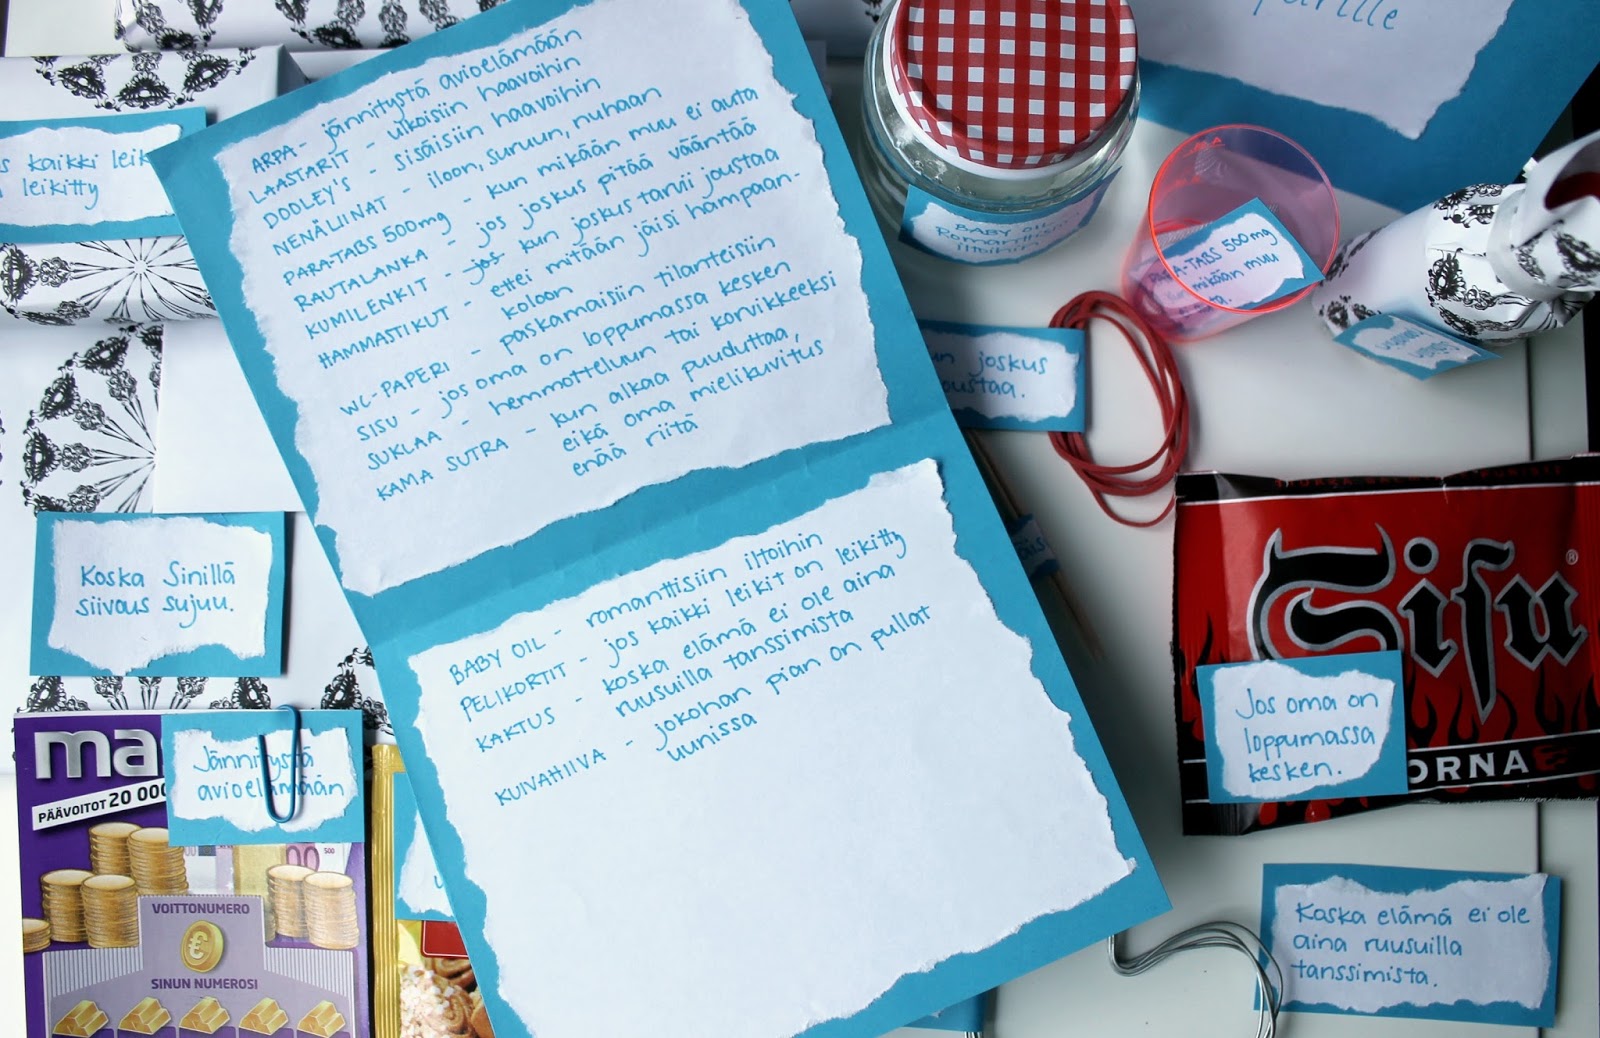 ARPA - jännitystä avioelämään
LAASTARIT - ulkoisiin haavoihin
DOOLEY'S - sisäisiin haavoihin
NENÄLIINAT - iloon, suruun, nuhaan
PARA-TABS 500mg - kun mikään muu ei auta
RAUTALANKA - jos joskus pitää vääntää
KUMILENKIT - jos kun joskus tarvii joustaa
HAMMASTIKUT - ettei mitään jäisi hampaan-
koloon
WC-PAPERI - paskamaisiin tilanteisiin
SISU - jos oma on loppumassa kesken
SUKLAA - hemmotteluun tai korvikkeeksi
KAMA SUTRA - kun alkaa puuduttaa,
eikä oma mielikuvitus
enää riitä
BABY OIL - romanttisiin iltoihin
PELIKORTIT - jos kaikki leikit on leikitty
KAKTUS - koska elämä ei ole aina
ruusuilla tanssimista
KUIVAHIIVA - jokohan pian on pullat
uunissa
kaikki
leikitty
Koska Sinillä
siivous sujuu.
Jännitystä
avioelämään
PÄÄVOITOT 20 000
VOITTONUMERO
€
SINUN NUMEROSI
BABY OIL
Romanttisiin
iltoihin
PARA-TABS 500mg
mikään muu
joskus
joustaa.
Sisu
®
Jos oma on
loppumassa
kesken.
Koska elämä ei ole
aina ruusuilla
tanssimista.